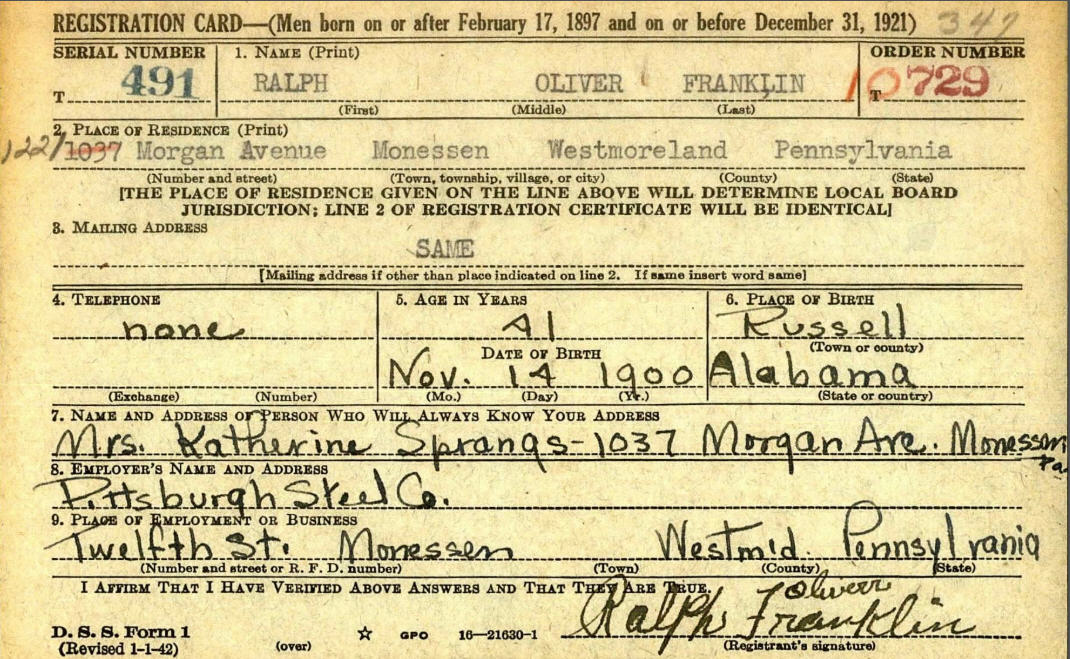 REGISTRATION CARD—(Men born on or after February 17, 1897 and on or before December 31, 1921) 347
SERIAL NUMBER 1. NAME (Print) ORDER NUMBER
T 491 RALPH OLIVER FRANKLIN T 10729
(First) (Middle) (Last)
2. PLACE OF RESIDENCE (Print)
1221 1037 Morgan Avenue Monessen Westmoreland Pennsylvania
(Number and street) (Town, township, village, or city) (County) (State)
[THE PLACE OF RESIDENCE GIVEN ON THE LINE ABOVE WILL DETERMINE LOCAL BOARD
JURISDICTION; LINE 2 OF REGISTRATION CERTIFICATE WILL BE IDENTICAL]
3. MAILING ADDRESS
SAME
[Mailing address if other than place indicated on line 2. If same insert word same]
4. TELEPHONE 5. AGE IN YEARS 6. PLACE OF BIRTH
none 41 Russell
DATE OF BIRTH (Town or county)
Nov. 14 1900 Alabama
(Exchange) (Number) (Mo.) (Day) (Yr.) (State or country)
7. NAME AND ADDRESS OF PERSON WHO WILL ALWAYS KNOW YOUR ADDRESS
Mrs. Katherine Sprangs-1037 Morgan Ave. Monessen
Pa.
8. EMPLOYER'S NAME AND ADDRESS
Pittsburgh Steel Co.
9. PLACE OF EMPLOYMENT OR BUSINESS
Twelfth St. Monessen Westm'd. Pennsylvania
(Number and street or R. F. D. number) (Town) (County) (State)
I AFFIRM THAT I HAVE VERIFIED ABOVE ANSWERS AND THAT THEY ARE TRUE.
Oliver
Ralph Franklin
D. S. S. Form 1
(Revised 1-1-42) (over) ☆ GPO 16—21630-1 (Registrant's signature)